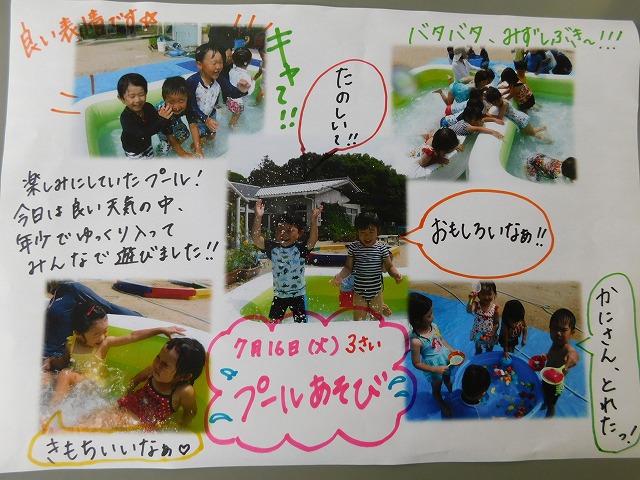 良い表情です☆
キャー!!
バタバタ、みずしぶき〜!!!
たのしいて!!
楽しみにしていたプール!
今日は良い天気の中、
年少でゆっくり入って
みんなで遊びました!!
おもしろいなぁ!!
かにさん、とれたっ!
7月16日(火)3さい
プールあそび
きもちいいなぁ♡